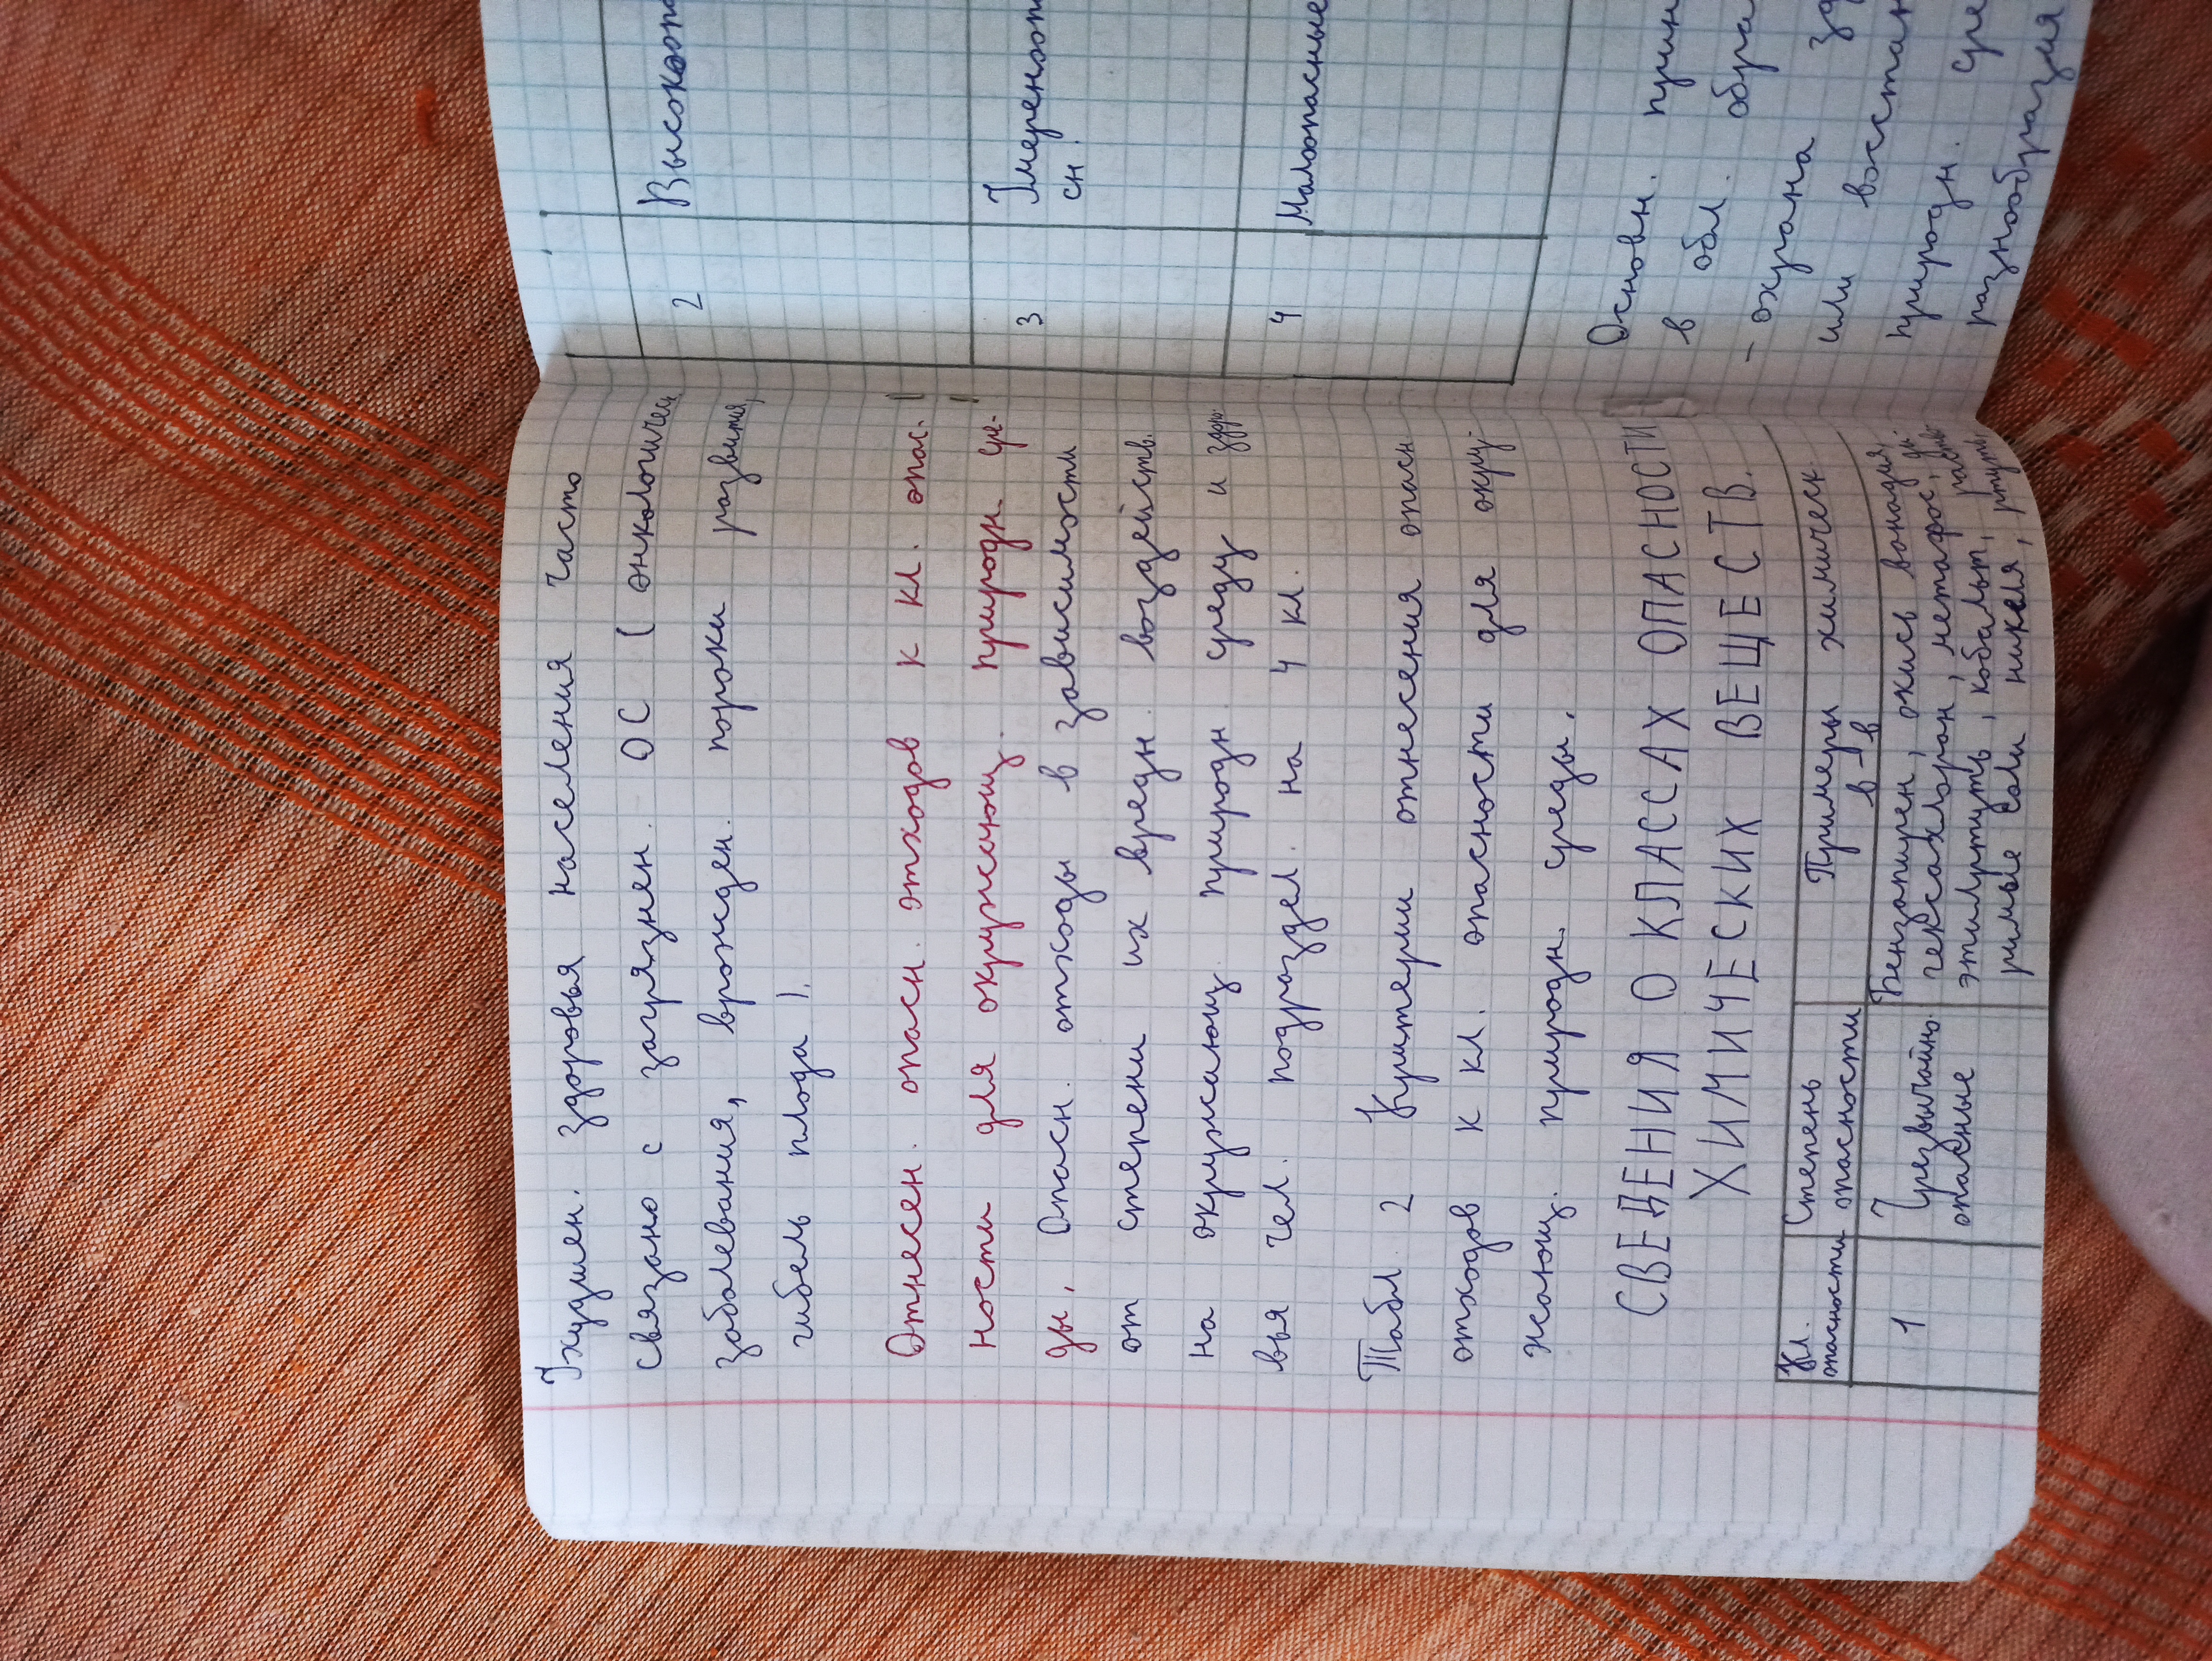 Ухудшен. здоровья населения часто
связано с загрязнен. ОС ( онкологичес
заболевания, врожден. пороки развития,
гибель плода ).
Отнесен. опасн. отходов к кл. опас.
ности для окружающ. природн. сре-
ды, Опасн. отходы в зависимости
от степени их вредн. воздейств.
на окружающ. природн. среду и здоро-
вья чел. подраздел. на 4 кл.
Табл. 2 Критерии отнесения опасн
отходов к кл. опасности для окру-
жающ. природн. среды.
СВЕДЕНИЯ О КЛАССАХ ОПАСНОСТИ
ХИМИЧЕСКИХ ВЕЩЕСТВ.
Кл. опасности
Степень опасности
Примеры химическ. в-в
1
Чрезвычайно опасные
Бензапирен, окись ванадия,
гексахлоран, метафос,
этилртуть, кобальт, раство-
римые соли никеля, ртуть,
2 Высокооп
3 Умереноп
сн.
4 Малоопасные
Основн. прин
в обл. обра
- охрана зд
или восстан
природн. сре
разнообразия